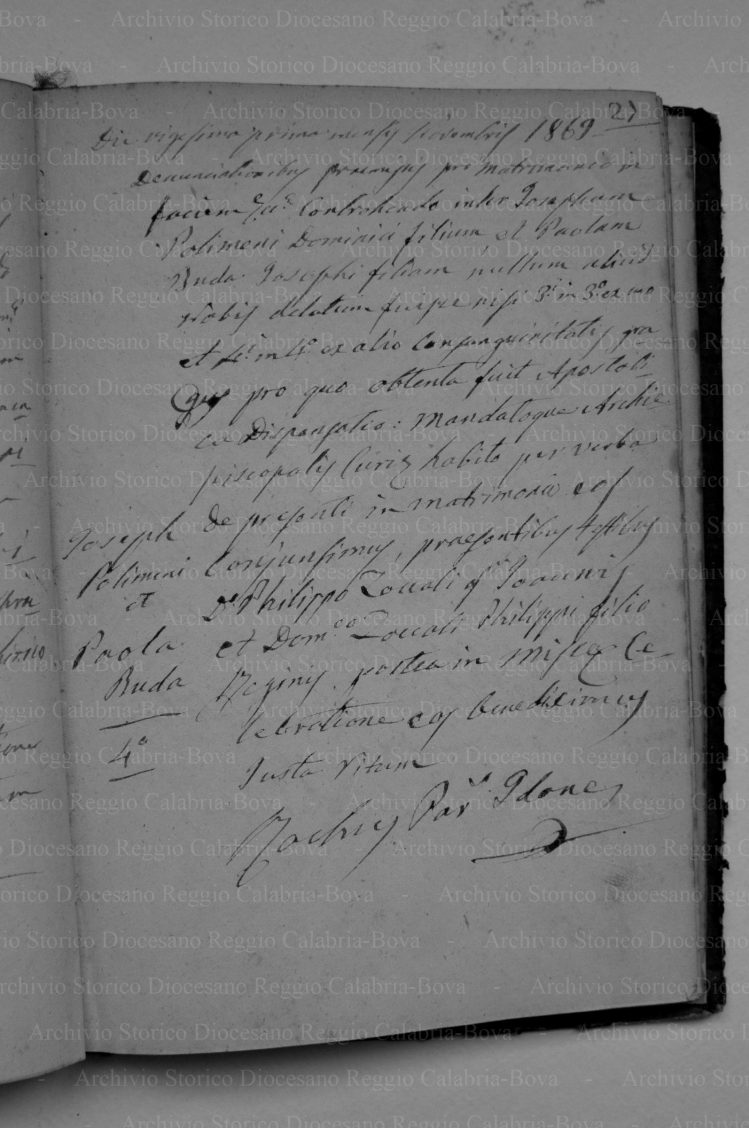 27
Die vigesima prima mensis Novembris 1869
Denunciationibus praemissis pro Matrimonio in
faciem E.ae contrahendo inter Josephum
Polimeni Dominici filium et Paolam
Buda Josephi filiam nullum aliud
nobis delatum fuisse nisi 3.i in 3.o ex uno
et 4.i in 4.o ex alio Consanguinitatis gra
dus pro quo obtenta fuit Apostoli-
ca Dispensatio: Mandatoque Archie-
piscopalis Curiae habito per verba
de presenti in matrimonio eos
Conjunsimus, praesentibus testibus
D. Philippo Laccoli
et Dom.co Laccoli Philippi filio
Reginis. postea in missae Ce-
lebratione eos benediximus
Justa Ritum
Rochus Par.
Joseph
Polimeni
et
Paola
Buda
4.o
Archivio Storico Diocesano Reggio Calabria-Bova